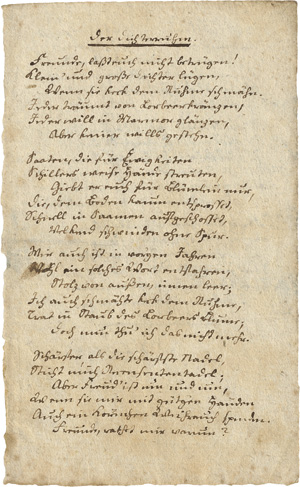 Der Dichterruhm.
Freunde, laßt euch nicht betrügen!
Klein' und große Dichter lügen,
Wenn sie keck dem Ruhme schmähn.
Jeder träumt von Lorbeerkränzen,
Jeder will in Marmor glänzen,
Aber keiner will's gestehn.
Saaten, die für Ewigkeiten
Schillers weise Hände streuten,
Giebt er euch für Blümlein nur,
Die, dem Boden kaum entsprossen,
Schnell in Saamen aufgeschossen,
Welkend schwinden ohne Spur.
Mir auch ist in vor'gen Jahren
Wohl ein solches Wort entfahren,
Stolz von außen, innen leer;
Ich auch schmähte keck dem Ruhme,
Trat in Staub des Lorbeers Blume,
Doch nun thu' ich das nicht mehr.
Schärfer als die schärfste Nadel,
Sticht mich Rezensententadel.
Aber Freud' ist nun
Wenn sie mir mit güt'gen Händen
Auch ein Körnchen Weihrauch spenden.
Freunde, rathet mir warum?